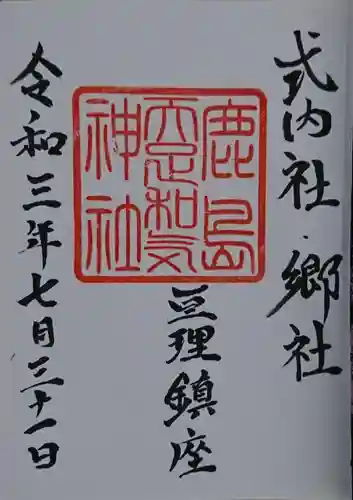 式内社・郷社
鹿島
天足和気
神社
亘理鎮座
令和三年七月三十一日